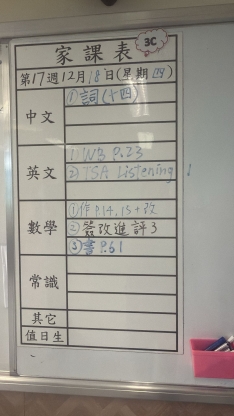 家課表
3C
第17週12月18日(星期四)
中文
① 詞(十四)
英文
① WB P.23
② TSA Listening
數學
①作P.14,15+改
②簽改進評3
③書P.61
常識
其它
值日生